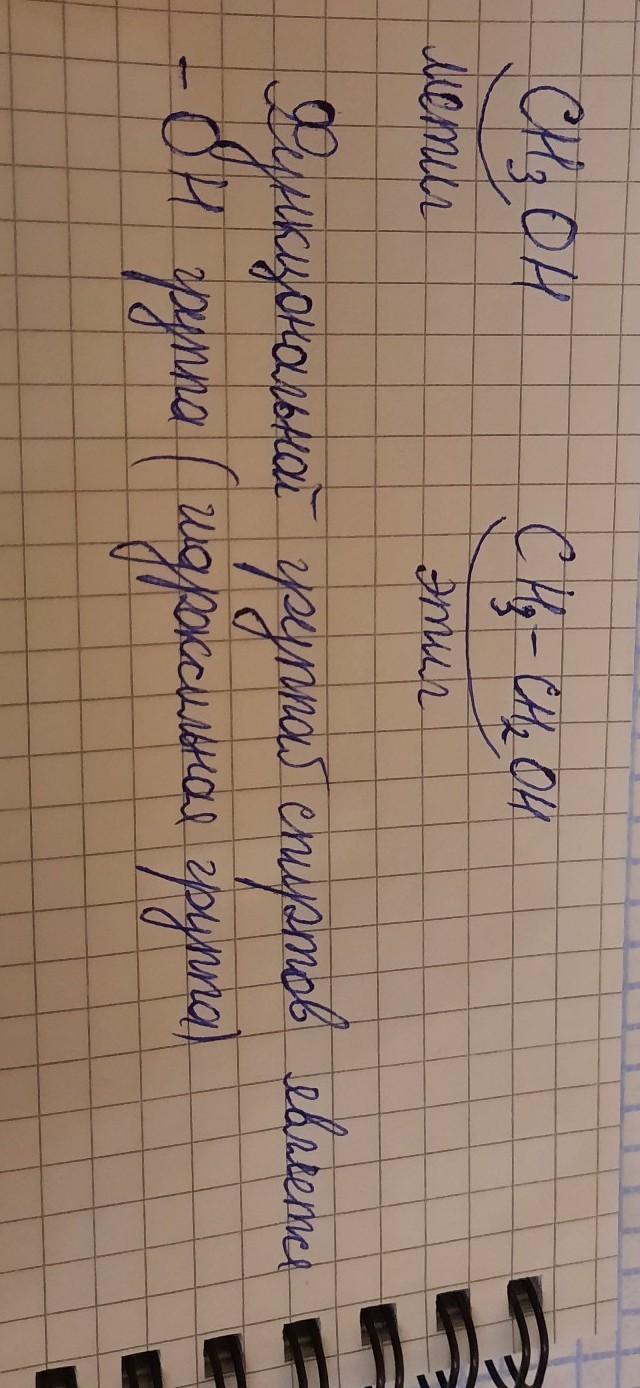 CH₃OH CH₃-CH₂OH
метил этил
Функциональной группой спиртов является
-ОН группа (гидроксильная группа)